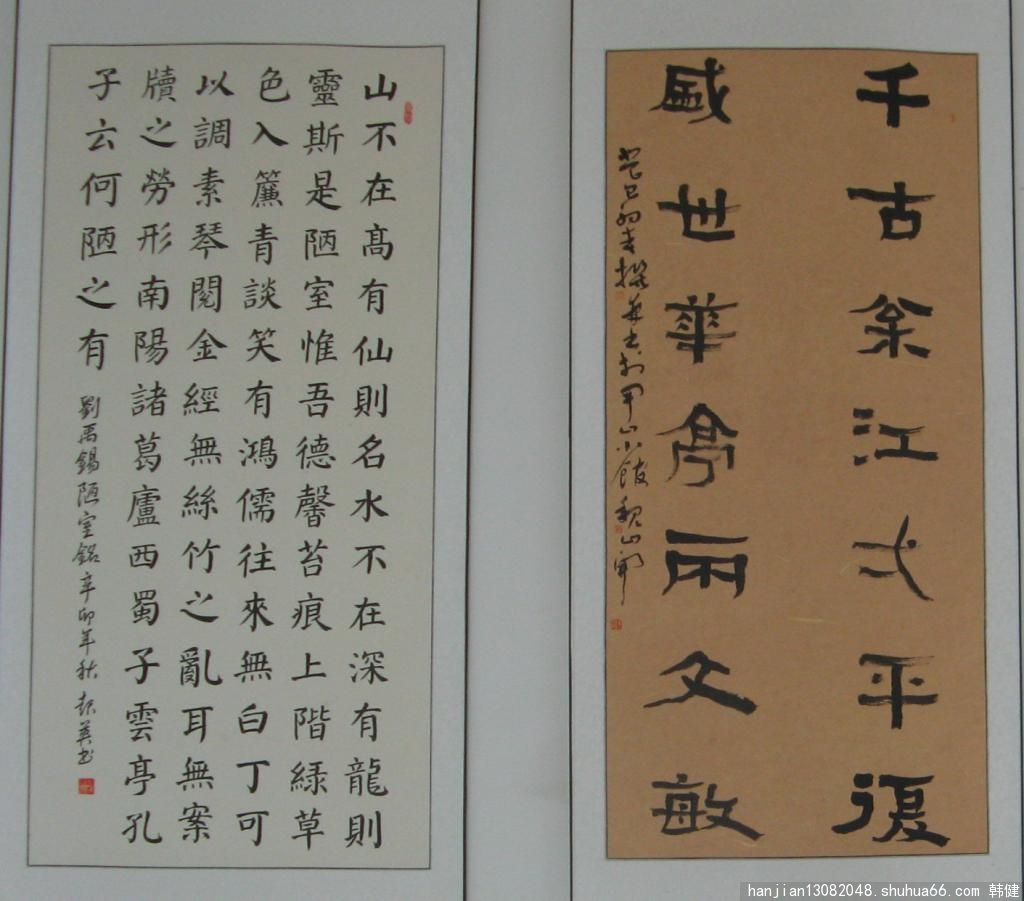 山不在髙有仙則名水不在深有龍則
靈斯是陋室惟吾德馨苔痕上階緑草
色入簾青談笑有鴻儒往來無白丁可
以調素琴閱金經無絲竹之亂耳無案
牘之勞形南陽諸葛廬西蜀子雲亭孔
子云何陋之有
劉禹錫陋室銘辛卯年秋
千古枀江弌平復
盛世華亭兩文敏
hanjian13082048.shuhua66.com 韩健